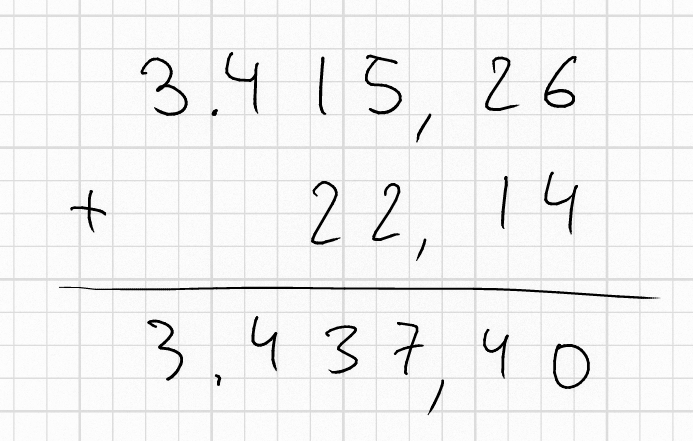 3.415,26
+ 22,14
3.437,40